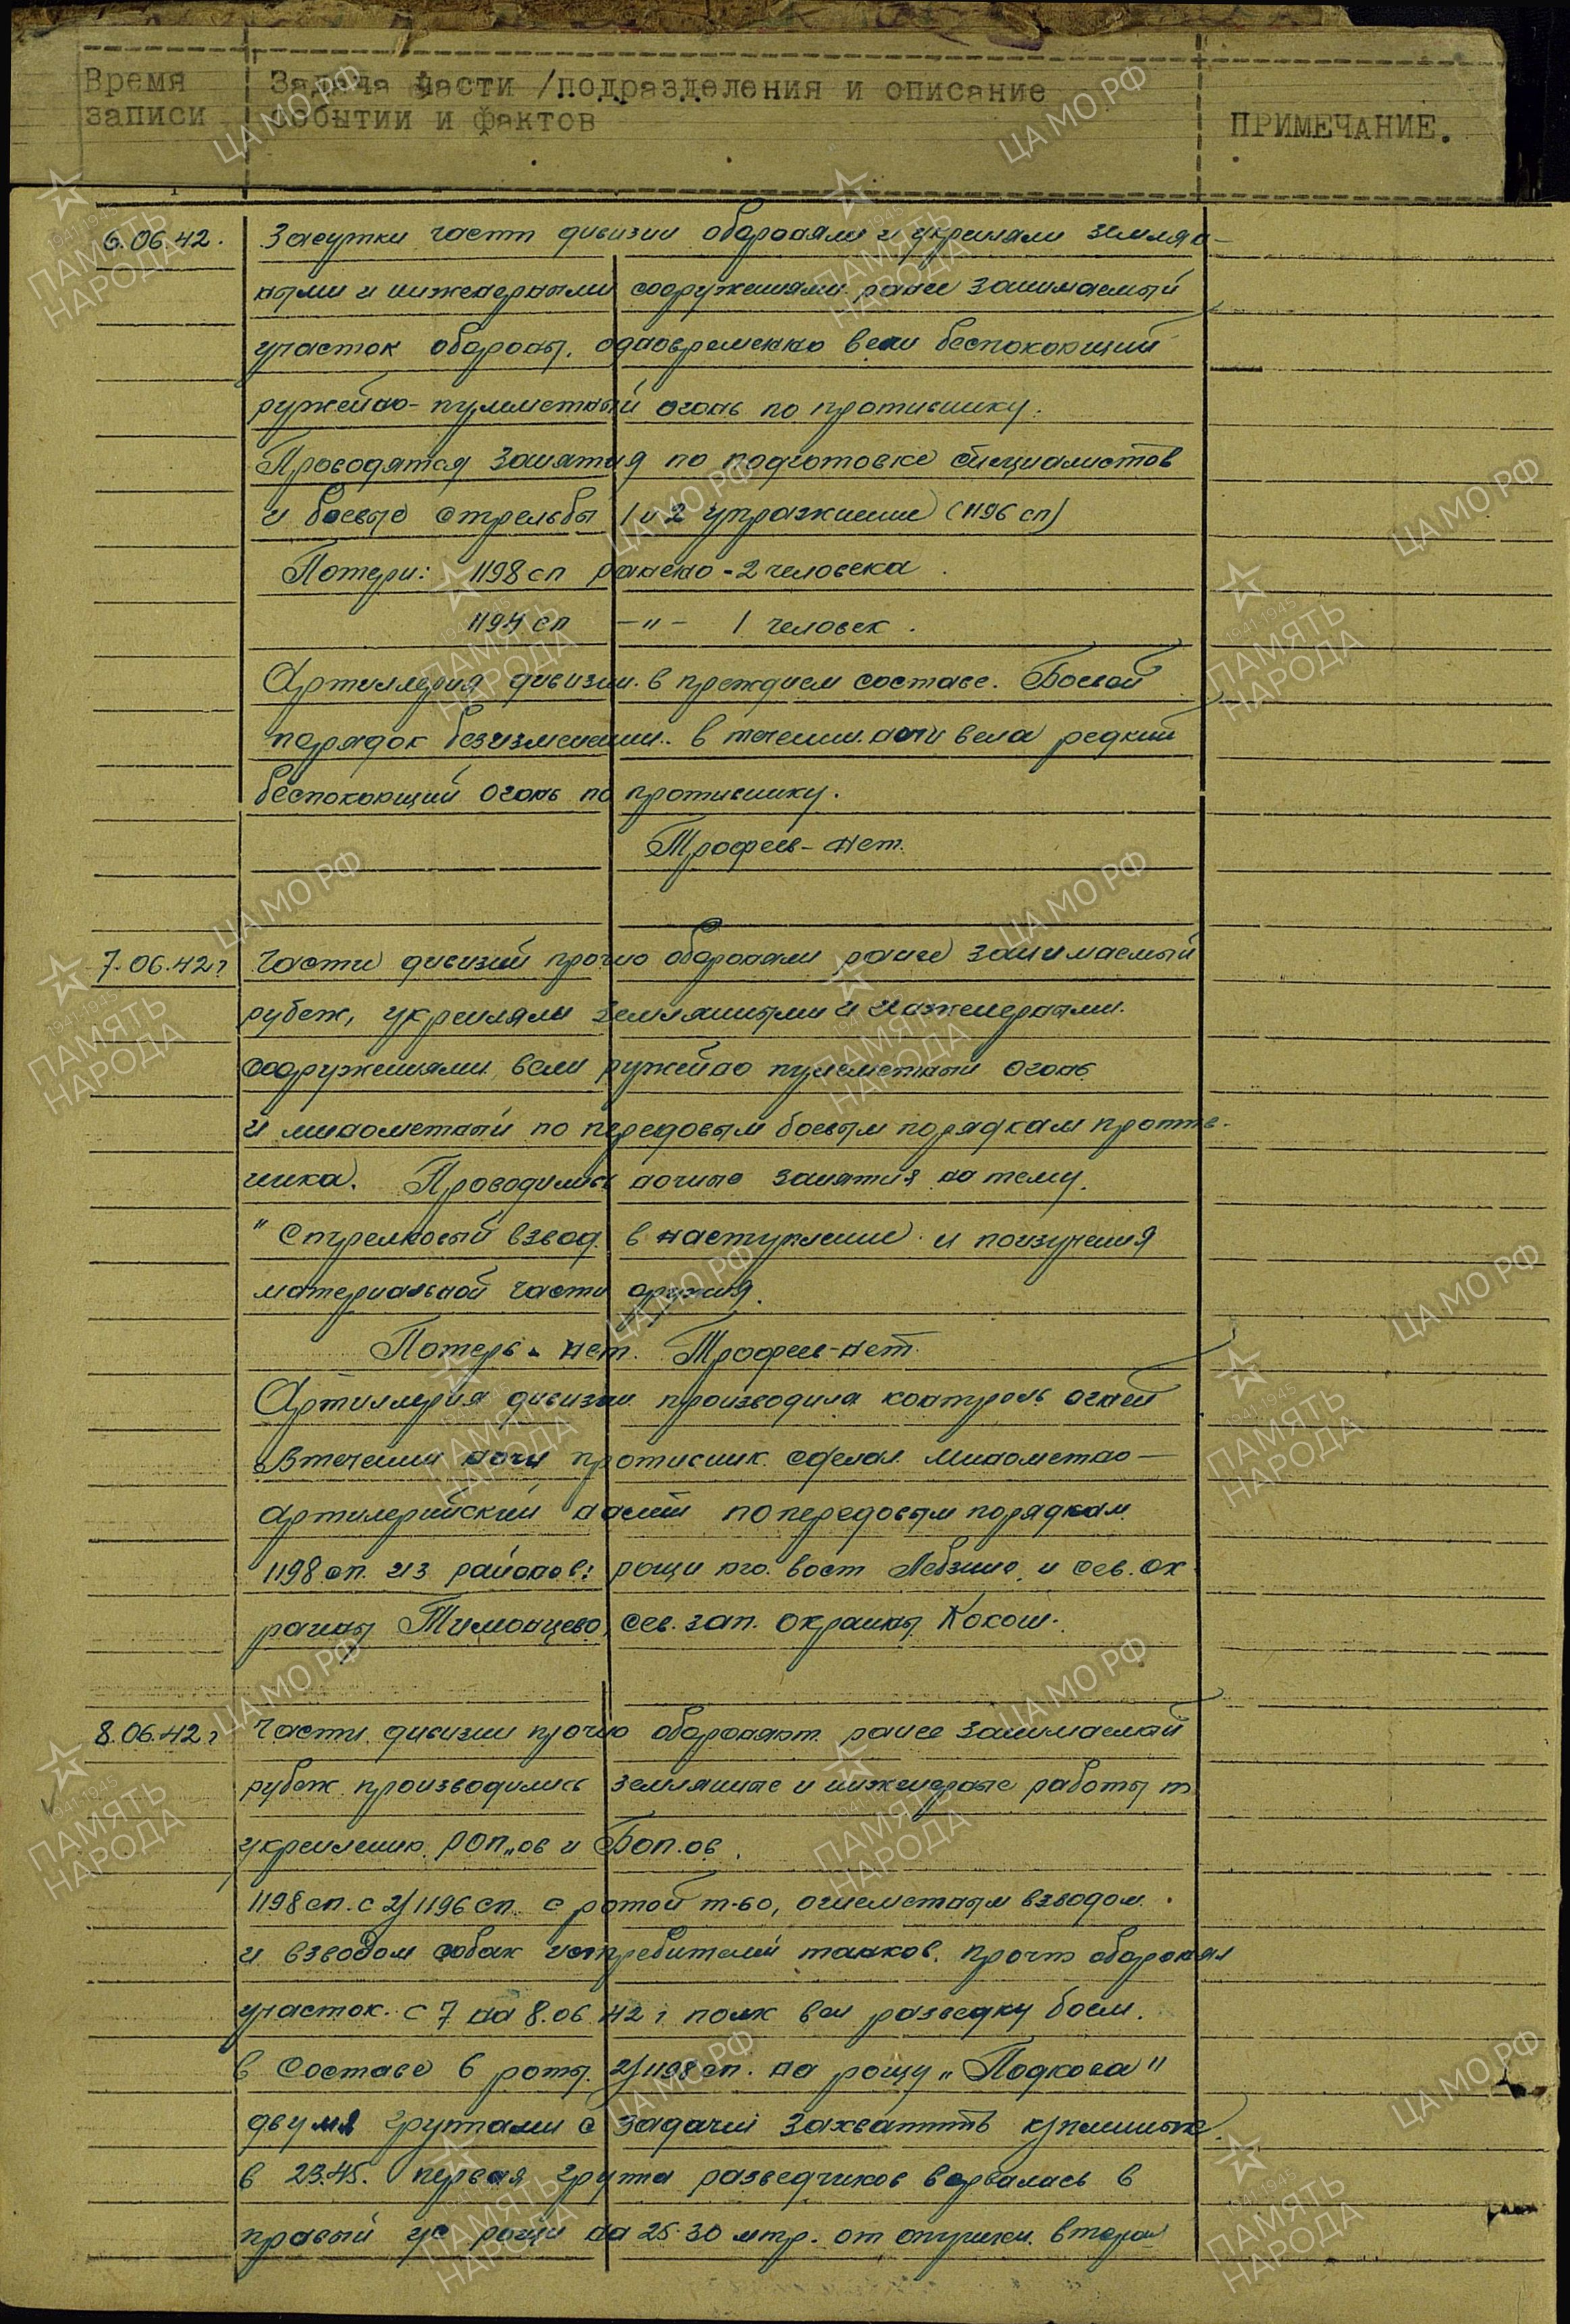 Время записи
Задача части /подразделения и описание событии и фактов
ПРИМЕЧАНИЕ.
6.06.42. Засутки части дивизии обороняли и укрепляли землян-
ными и инженерными сооружениями ранее занимаемый
участок обороны. одновременно вели беспокоющий
ружейно-пулиметный огонь по противнику.
Проводятся занятия по подготовке специалистов
и боевые стрельбы 1 и 2 упражнение (1196 сп)
Потери: 1198 сп ранено - 2 человека.
1194 сп -"- 1 человек.
Артиллерия дивизии в прежднем составе. Боевой
порядок безизменении.. в течении ночи вела редкий
беспокоющий огонь по противнику.
Трофеев - нет.
7.06.42г Части дивизий прочно обороняли ранее занимаемый
рубеж, укрепляли земляными и инженерными
сооружениями вели ружейно пулеметный огонь
и минометный по передовым боевым порядкам против-
ника. Проводились ночные занятия на тему
"Стрелковый взвод в наступление и поизучения
материальной части оружия.
Потерь - нет. Трофеев - нет.
Артиллерия дивизии производила контроль огней
Втечении ночи противник сделал минометно-
артилерийский налет по передовым порядкам
1198 сп. из районов: рощи юго. вост Лебзино, и сев. ок
раины Тимонцево, сев. зап. окраины Кокош.
8.06.42г Части дивизии прочно обороняют ранее занимаемый
рубеж производились земляные и инженерные работы
укреплению РОП„ов и БОП.ов.
1198 сп. с 2/1196 сп. с ротой т-60, огнеметным взводом
и взводом собак истребителей танков. прочно оборонял
участок. с 7 на 8.06.42 г полк вел разведку боем.
в составе 6 роты. 2/1198 сп. на рощу „Подкова"
двумя групами с задачей захватить
в 23.45. первая група разведчиков ворвалась в
правый ус рощи на 25-30 мтр. от опушки. вторая
ЦА МО РФ
ПАМЯТЬ НАРОДА
1941-1945